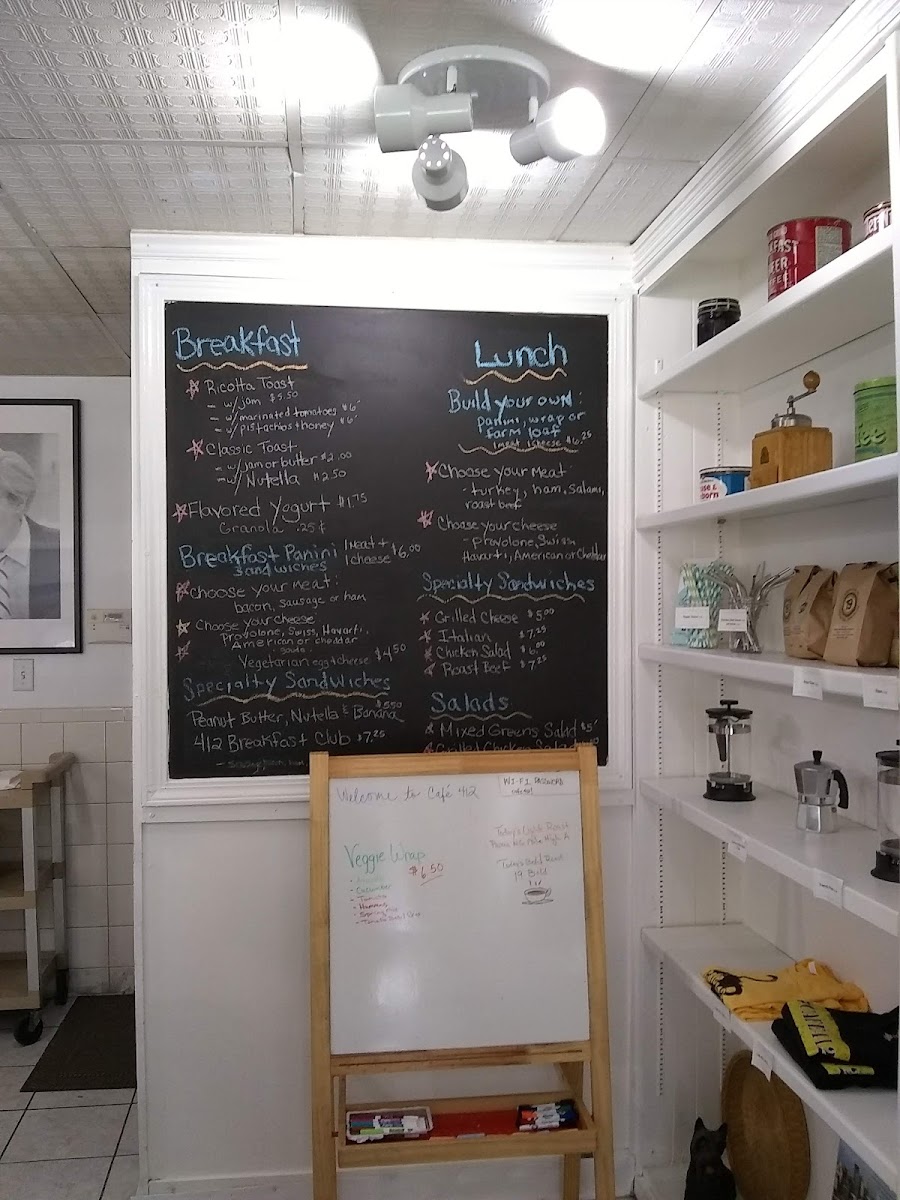 Breakfast
Ricotta Toast
- w/jam $5.50
- w/marinated tomatoes $6
- w/pistachios & honey $6
Classic Toast
- w/jam or butter $2.00
- w/Nutella $2.50
Flavored Yogurt $1.75
Granola .25¢
Breakfast Panini Sandwiches
1 meat + 1 cheese $6.00
Choose your meat:
bacon, sausage or ham
Choose your cheese
Provolone, Swiss, Havarti,
American or cheddar
Vegetarian eggs & cheese $4.50
Specialty Sandwiches
Peanut Butter, Nutella & Banana $5.50
412 Breakfast Club $7.25
Lunch
Build your own:
panini, wrap or
farm loaf
1 meat 1 cheese $6.25
Choose your meat
- turkey, ham, Salami,
roast beef
Choose your cheese
- Provolone, Swiss
Havarti, American or Cheddar
Specialty Sandwiches
Grilled Cheese $5.00
Italian $7.25
Chicken Salad $6.00
Roast Beef $7.25
Salads
Mixed Greens Salad $5
Grilled Chicken Salad
Welcome to Café 412
WI-FI PASSWORD
Veggie Wrap
$6.50
- Cucumber
- Tomato
- Hummus
- Spring Mix
Today's Light Roast
Today's Bold Roast
19 Bold